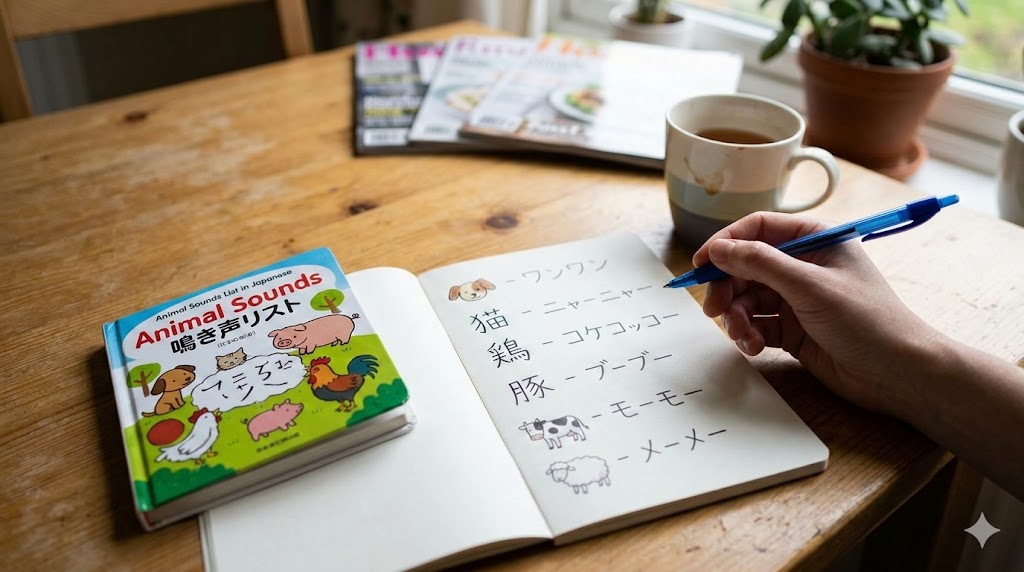 Animal Sounds List in Japanese
Animal Sounds
鳴き声リスト
- ワンワン
猫 - ニャーニャー
鶏 - コケコッコー
豚 - ブーブー
- モーモー
- メーメー